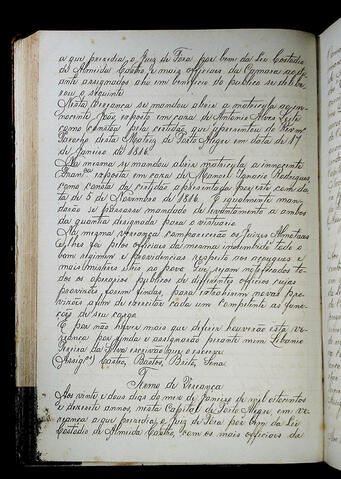 a que presidia, o Juiz de Fora por bem da Lei Custodio
de Almeida Castro, e mais officiaes da Camara ao di-
ante assignados ahi em beneficio do publico se delibe-
rou o seguinte
Nesta vereança se mandou abrir a matricula ao in-
nocente José exposto em caza de Antonio Alves Leite
como constou pela certidão que apresentou do Revmº
Parocho desta Matriz de Porto Alegre em data de 17
de Janeiro de 1816.
Na mesma se mandou abrir matricula a innocente
exposta em caza de Manoel Ignacio Rodrigues,
como consta da certidão apresentada por este com da-
ta de 5 de Novembro de 1816. E igualmente man-
darão se passasse mandado de levantamento a ambos
da quantia designada para o vistuario.
Na mesma vereança comparecerão os Juizes Almotaces
e lhes foi pelos officiaes da mesma todo o
bom regimen e providencias respeito aos açougues e
mais ao povo que sejam notificados to-
dos os aprazios publicos de differentes officios cujas
provizões forem findas para tirarem novas pro-
vizões afim de exercitar cada um competente as func-
ções de seu cargo.
E por não haver mais que deferir houverão esta ve-
reança por finda e assignarão perante mim Libanio
Pereira da Silva escrivão que o escrevi.
(Assigºs) Castro, Bastos, Brito, Sena.
Termo de Vereança
Aos vinte e dous dias do mez de Janeiro de mil oitocentos
e dezesete annos, nesta Capital de Porto Alegre, em ve-
reança a que presidia, o Juiz de Fora por bem da Lei
Custodio de Almeida Castro, com os mais officiaes da